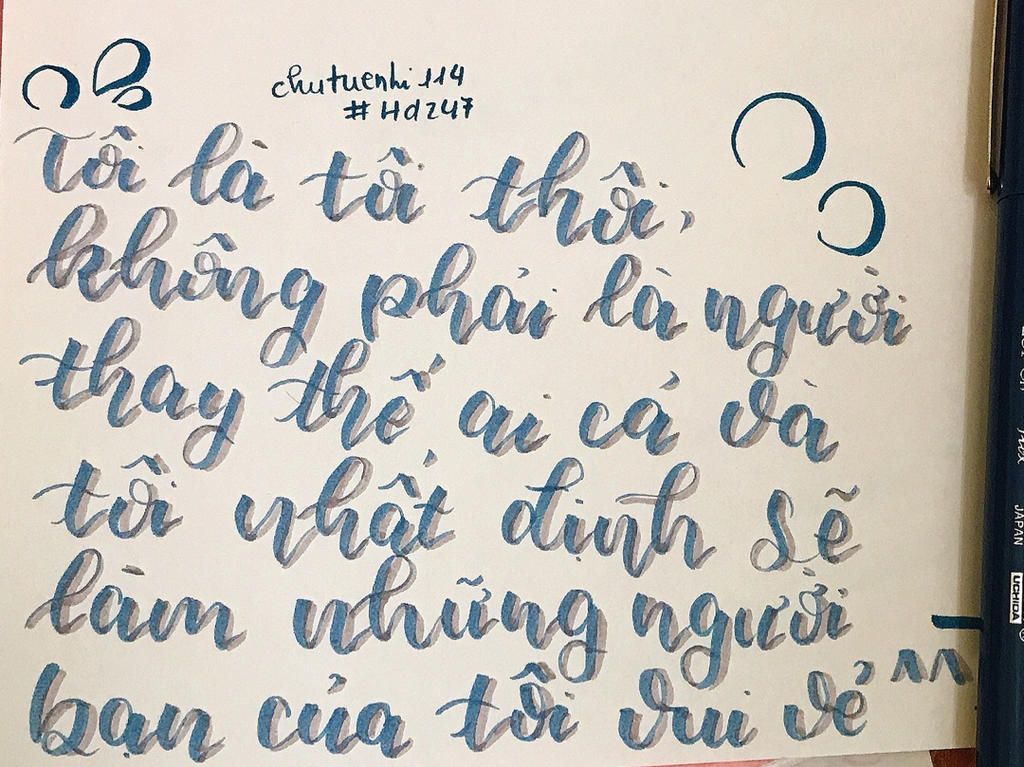 chutuenhi114
#Hd247
Tôi là tôi thôi,
không phải là người
thay thế ai cả và
tôi nhất định sẽ
làm những người
bạn của tôi vui vẻ ^^
JAPAN
UCHIDA